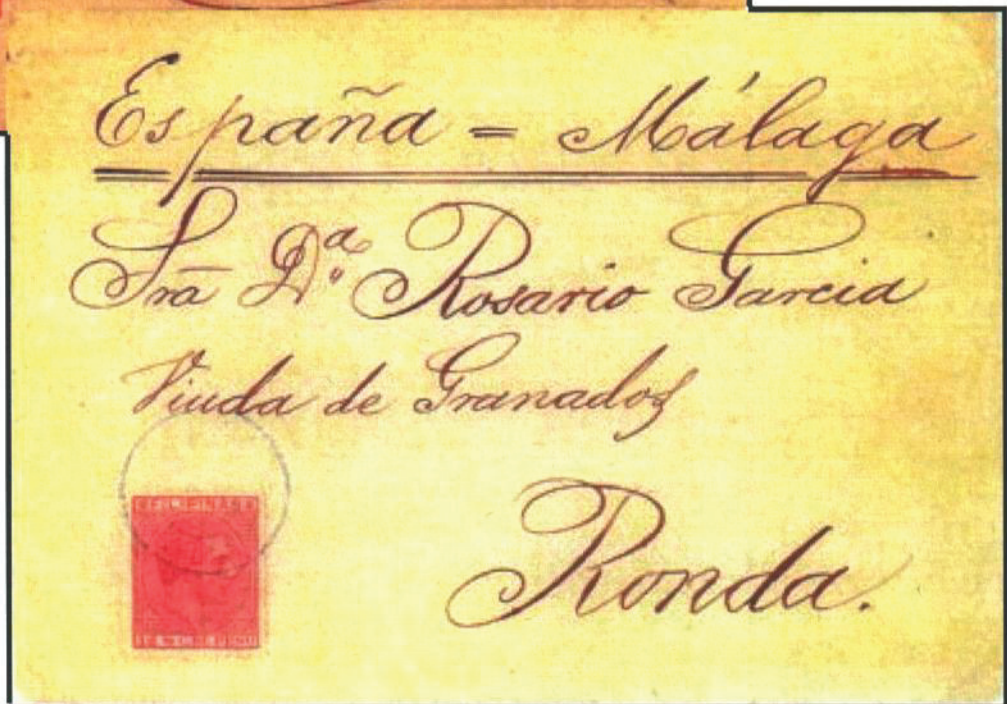 España = Málaga
Sra Dª Rosario Garcia
Viuda de Granados
Ronda.